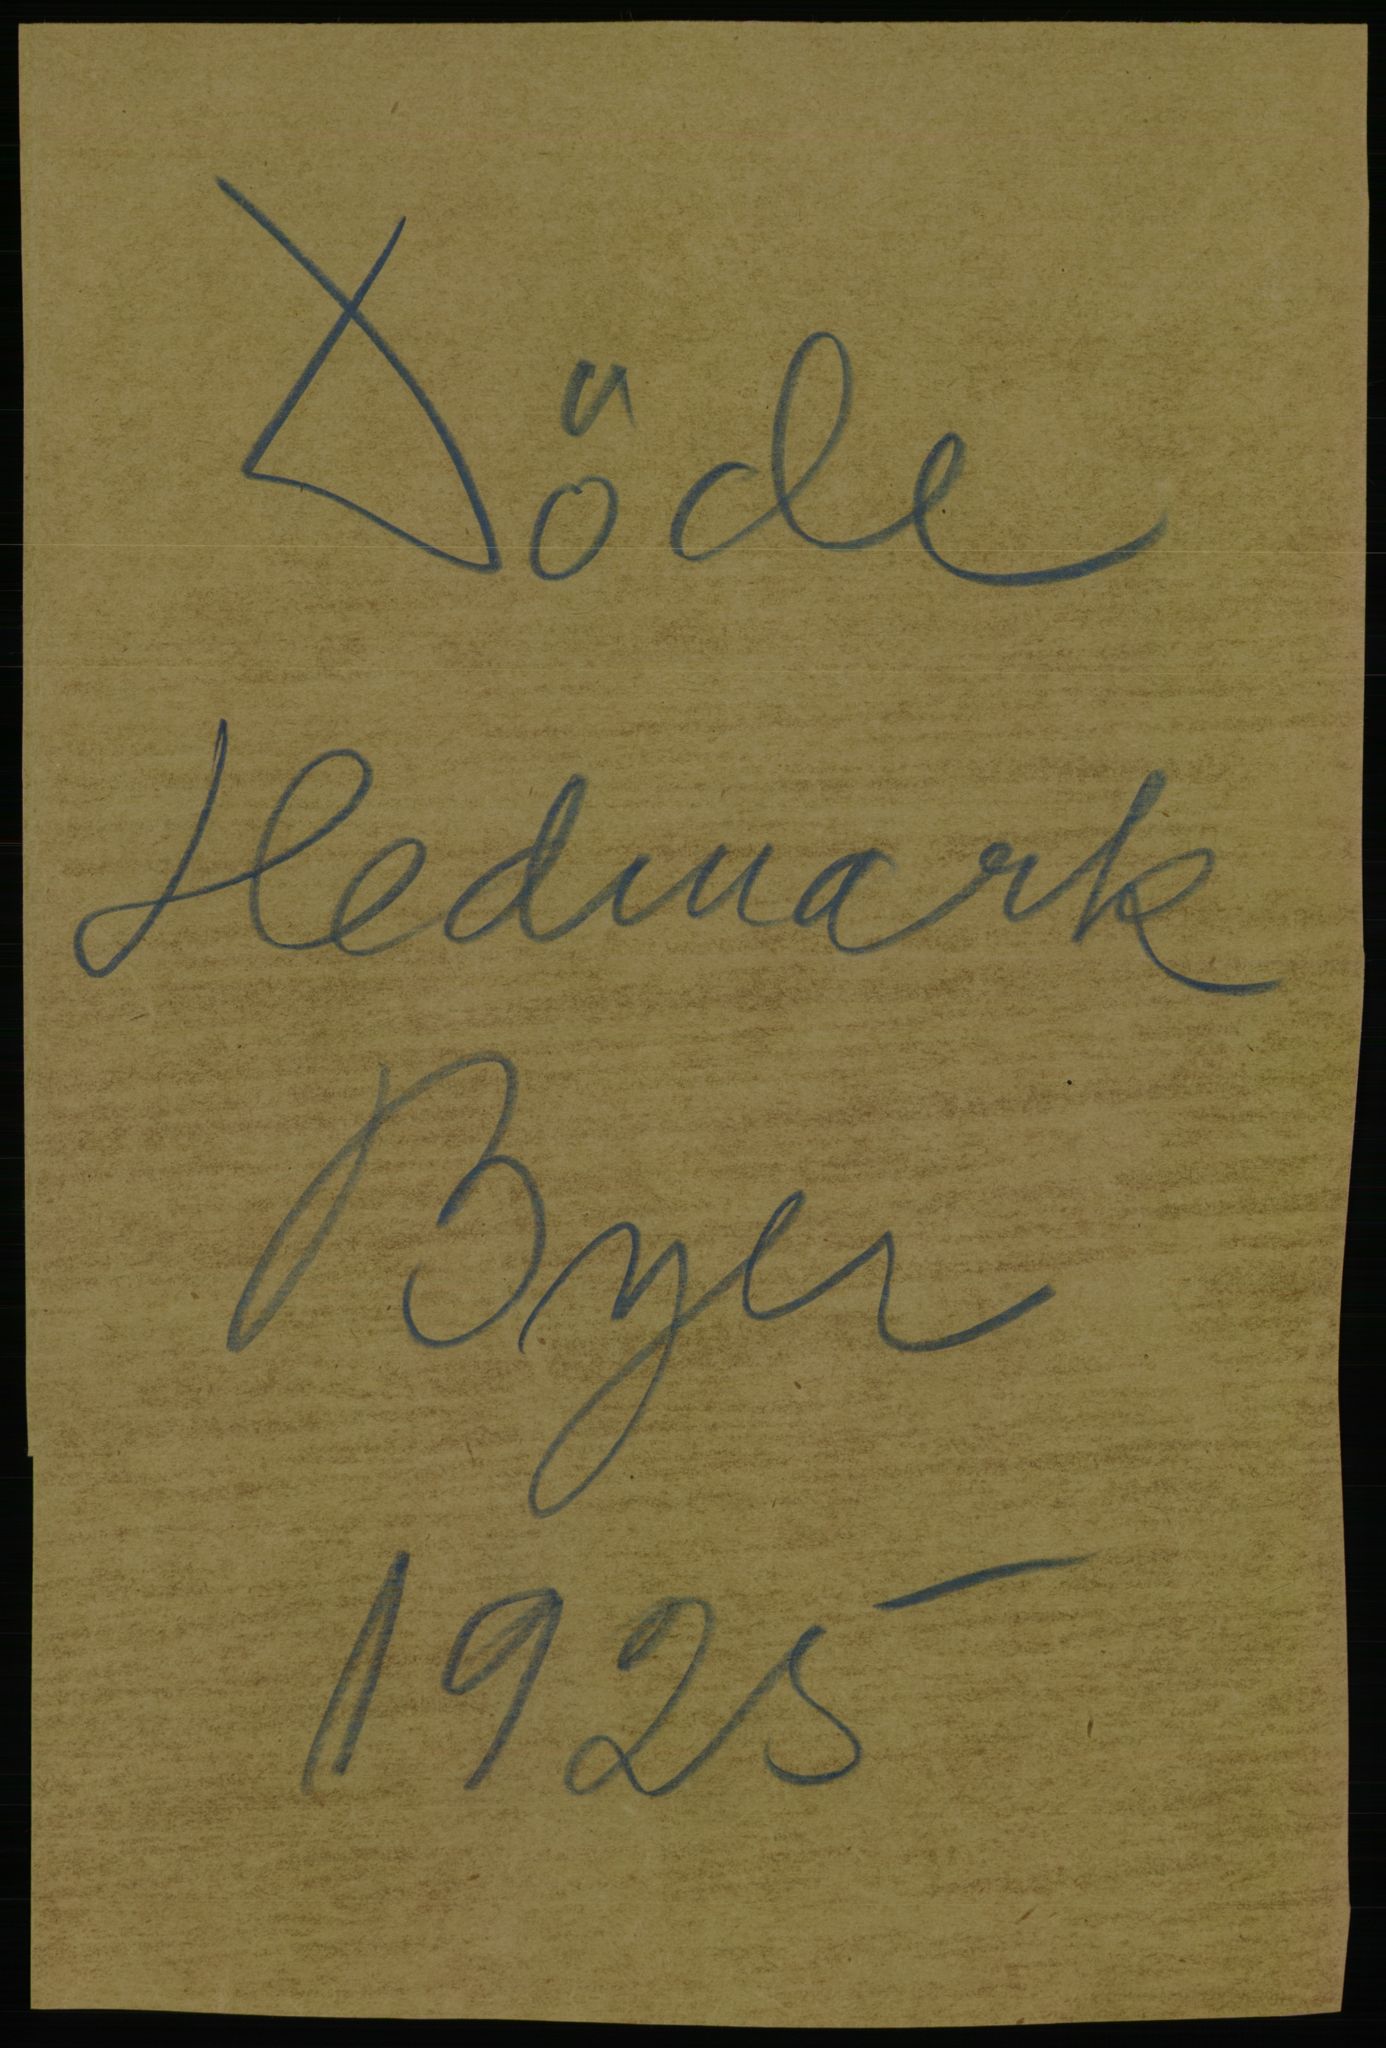 Döde
Hedmark
Byer
1925